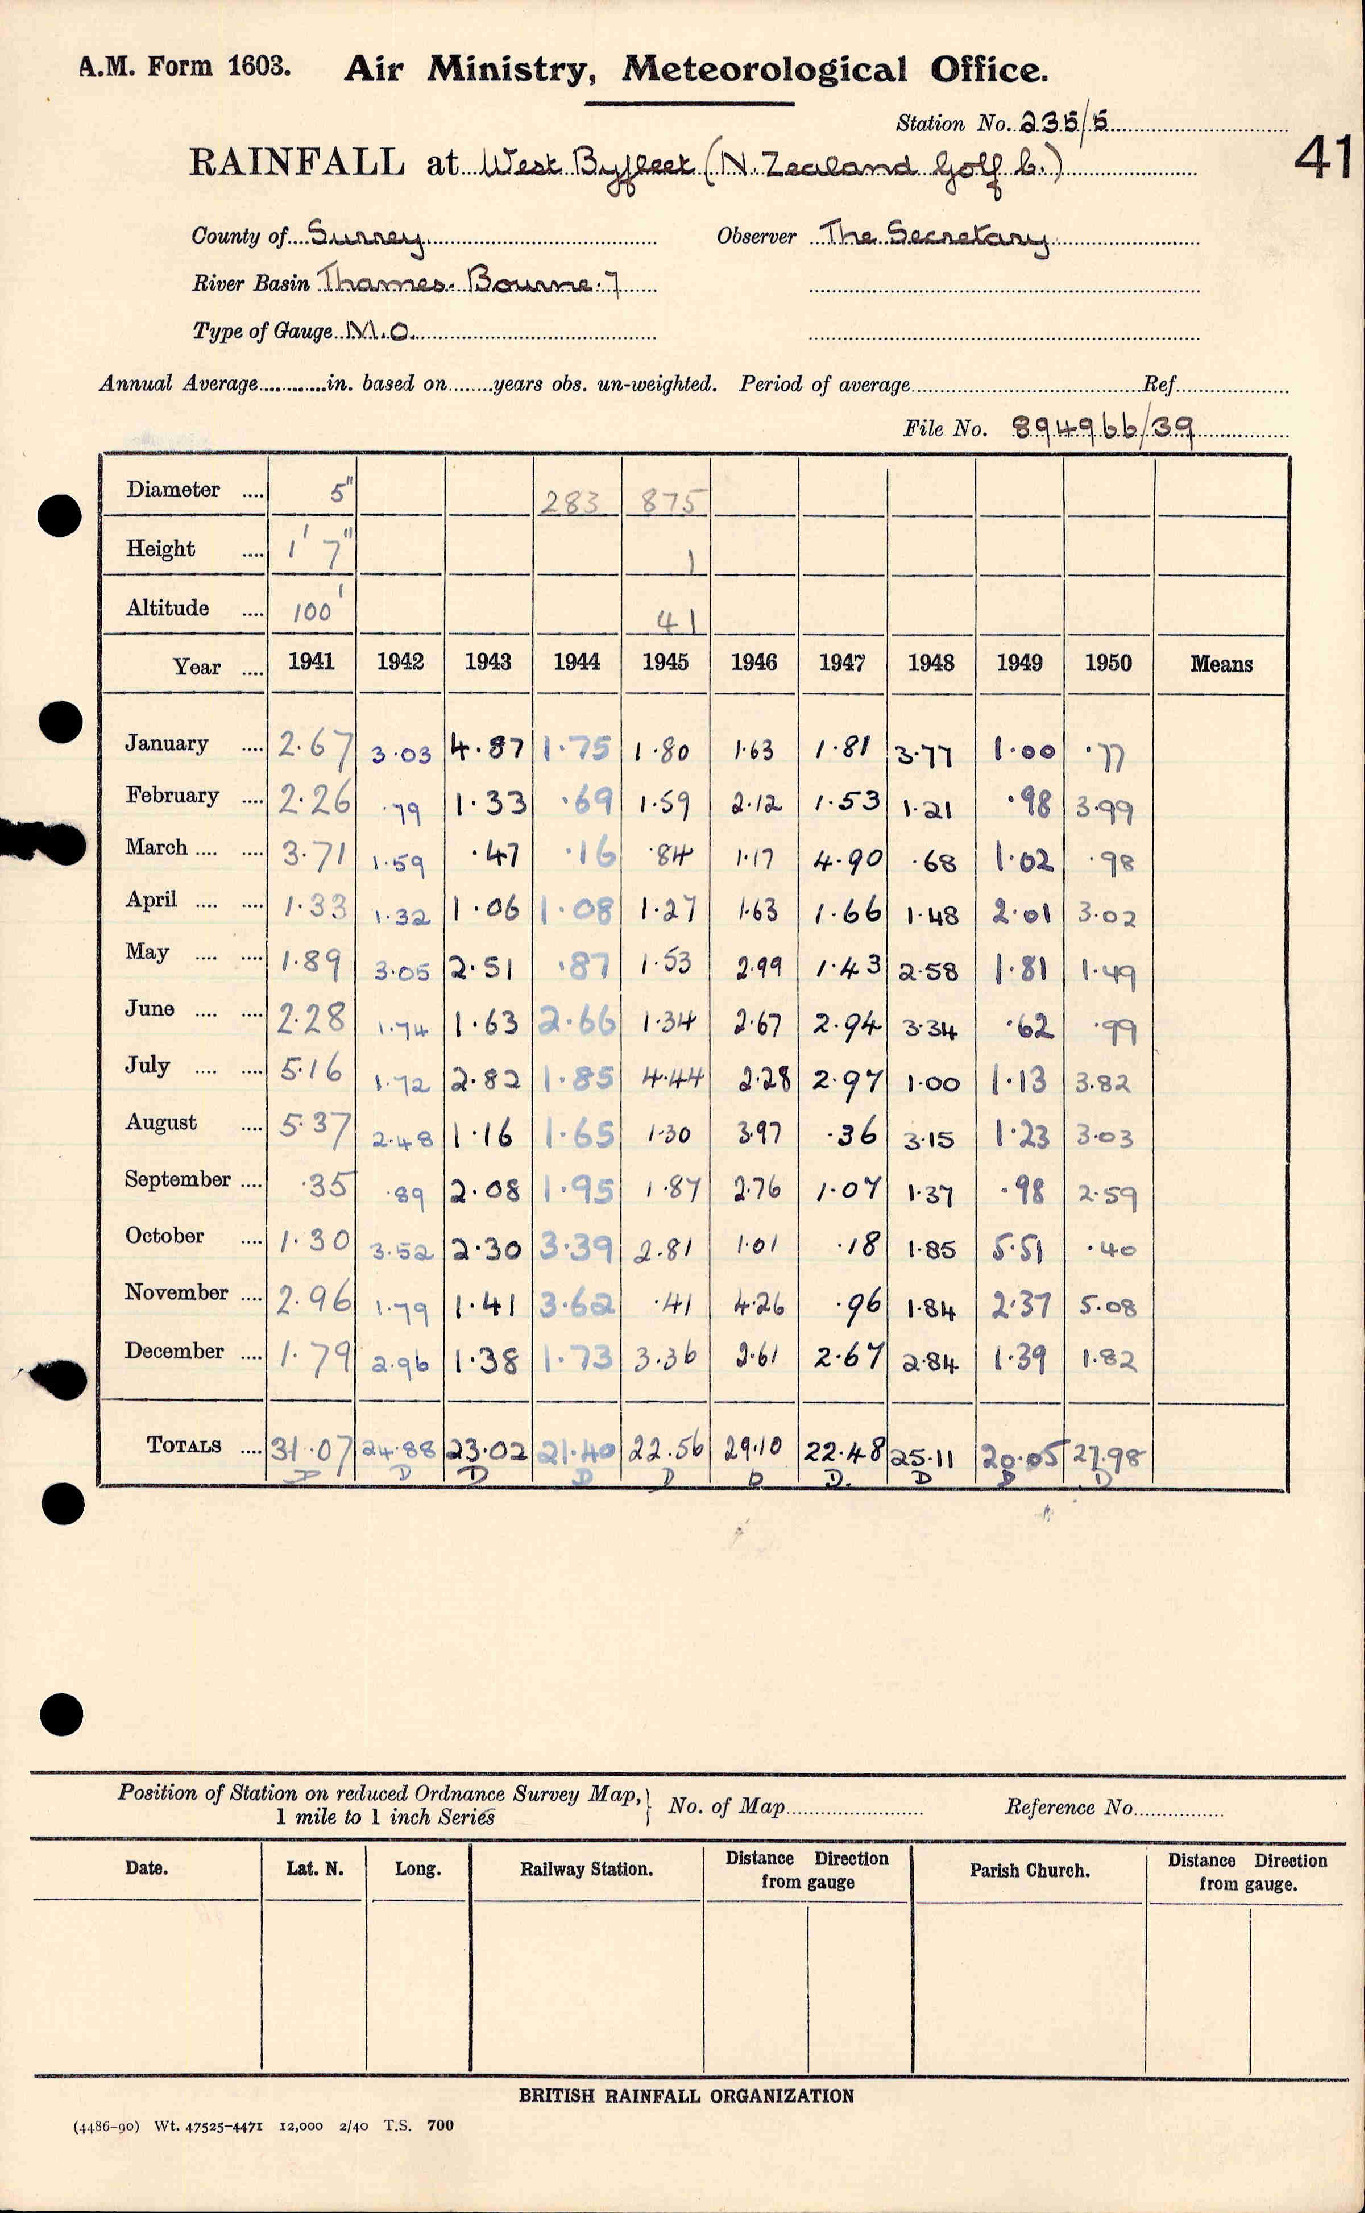 A.M. Form 1603. Air Ministry, Meteorological Office.
Station No. 235/5
41
RAINFALL at West Byfleet (N. Zealand Golf C.)
County of Surrey Observer The Secretary
River Basin Thames. Bourne. 7
Type of Gauge M.O.
Annual Average in. based on years obs. un-weighted. Period of average Ref.
File No. 894966/39
Diameter .... 5" 283 875
Height .... 1' 7" 1
Altitude .... 100' 41
Year .... 1941 1942 1943 1944 1945 1946 1947 1948 1949 1950 Means
January .... 2.67 3.03 4.87 1.75 1.80 1.63 1.81 3.77 1.00 .77
February .... 2.26 .79 1.33 .69 1.59 2.12 1.53 1.21 .98 3.99
March .... .... 3.71 1.59 .47 .16 .84 1.17 4.90 .68 1.02 .98
April .... .... 1.33 1.32 1.06 1.08 1.27 1.63 1.66 1.48 2.01 3.02
May .... .... 1.89 3.05 2.51 .87 1.53 2.99 1.43 2.58 1.81 1.49
June .... .... 2.28 1.74 1.63 2.66 1.34 2.67 2.94 3.34 .62 .99
July .... .... 5.16 1.72 2.82 1.85 4.44 2.28 2.97 1.00 1.13 3.82
August .... 5.37 2.48 1.16 1.65 1.30 3.97 .36 3.15 1.23 3.03
September .... .35 .89 2.08 1.95 1.87 2.76 1.07 1.37 .98 2.59
October .... 1.30 3.52 2.30 3.39 2.81 1.01 .18 1.85 5.51 .40
November .... 2.96 1.79 1.41 3.62 .41 4.26 .96 1.84 2.37 5.08
December .... 1.79 2.96 1.38 1.73 3.36 2.61 2.67 2.84 1.39 1.82
TOTALS .... 31.07 24.88 23.02 21.40 22.56 29.10 22.48 25.11 20.05 27.98
D D D D D D D. D D D
Position of Station on reduced Ordnance Survey Map,} No. of Map Reference No.
1 mile to 1 inch Series
Date. Lat. N. Long. Railway Station. Distance Direction from gauge Parish Church. Distance Direction from gauge.
BRITISH RAINFALL ORGANIZATION
(4486-90) Wt. 47525-4471 12,000 2/40 T.S. 700